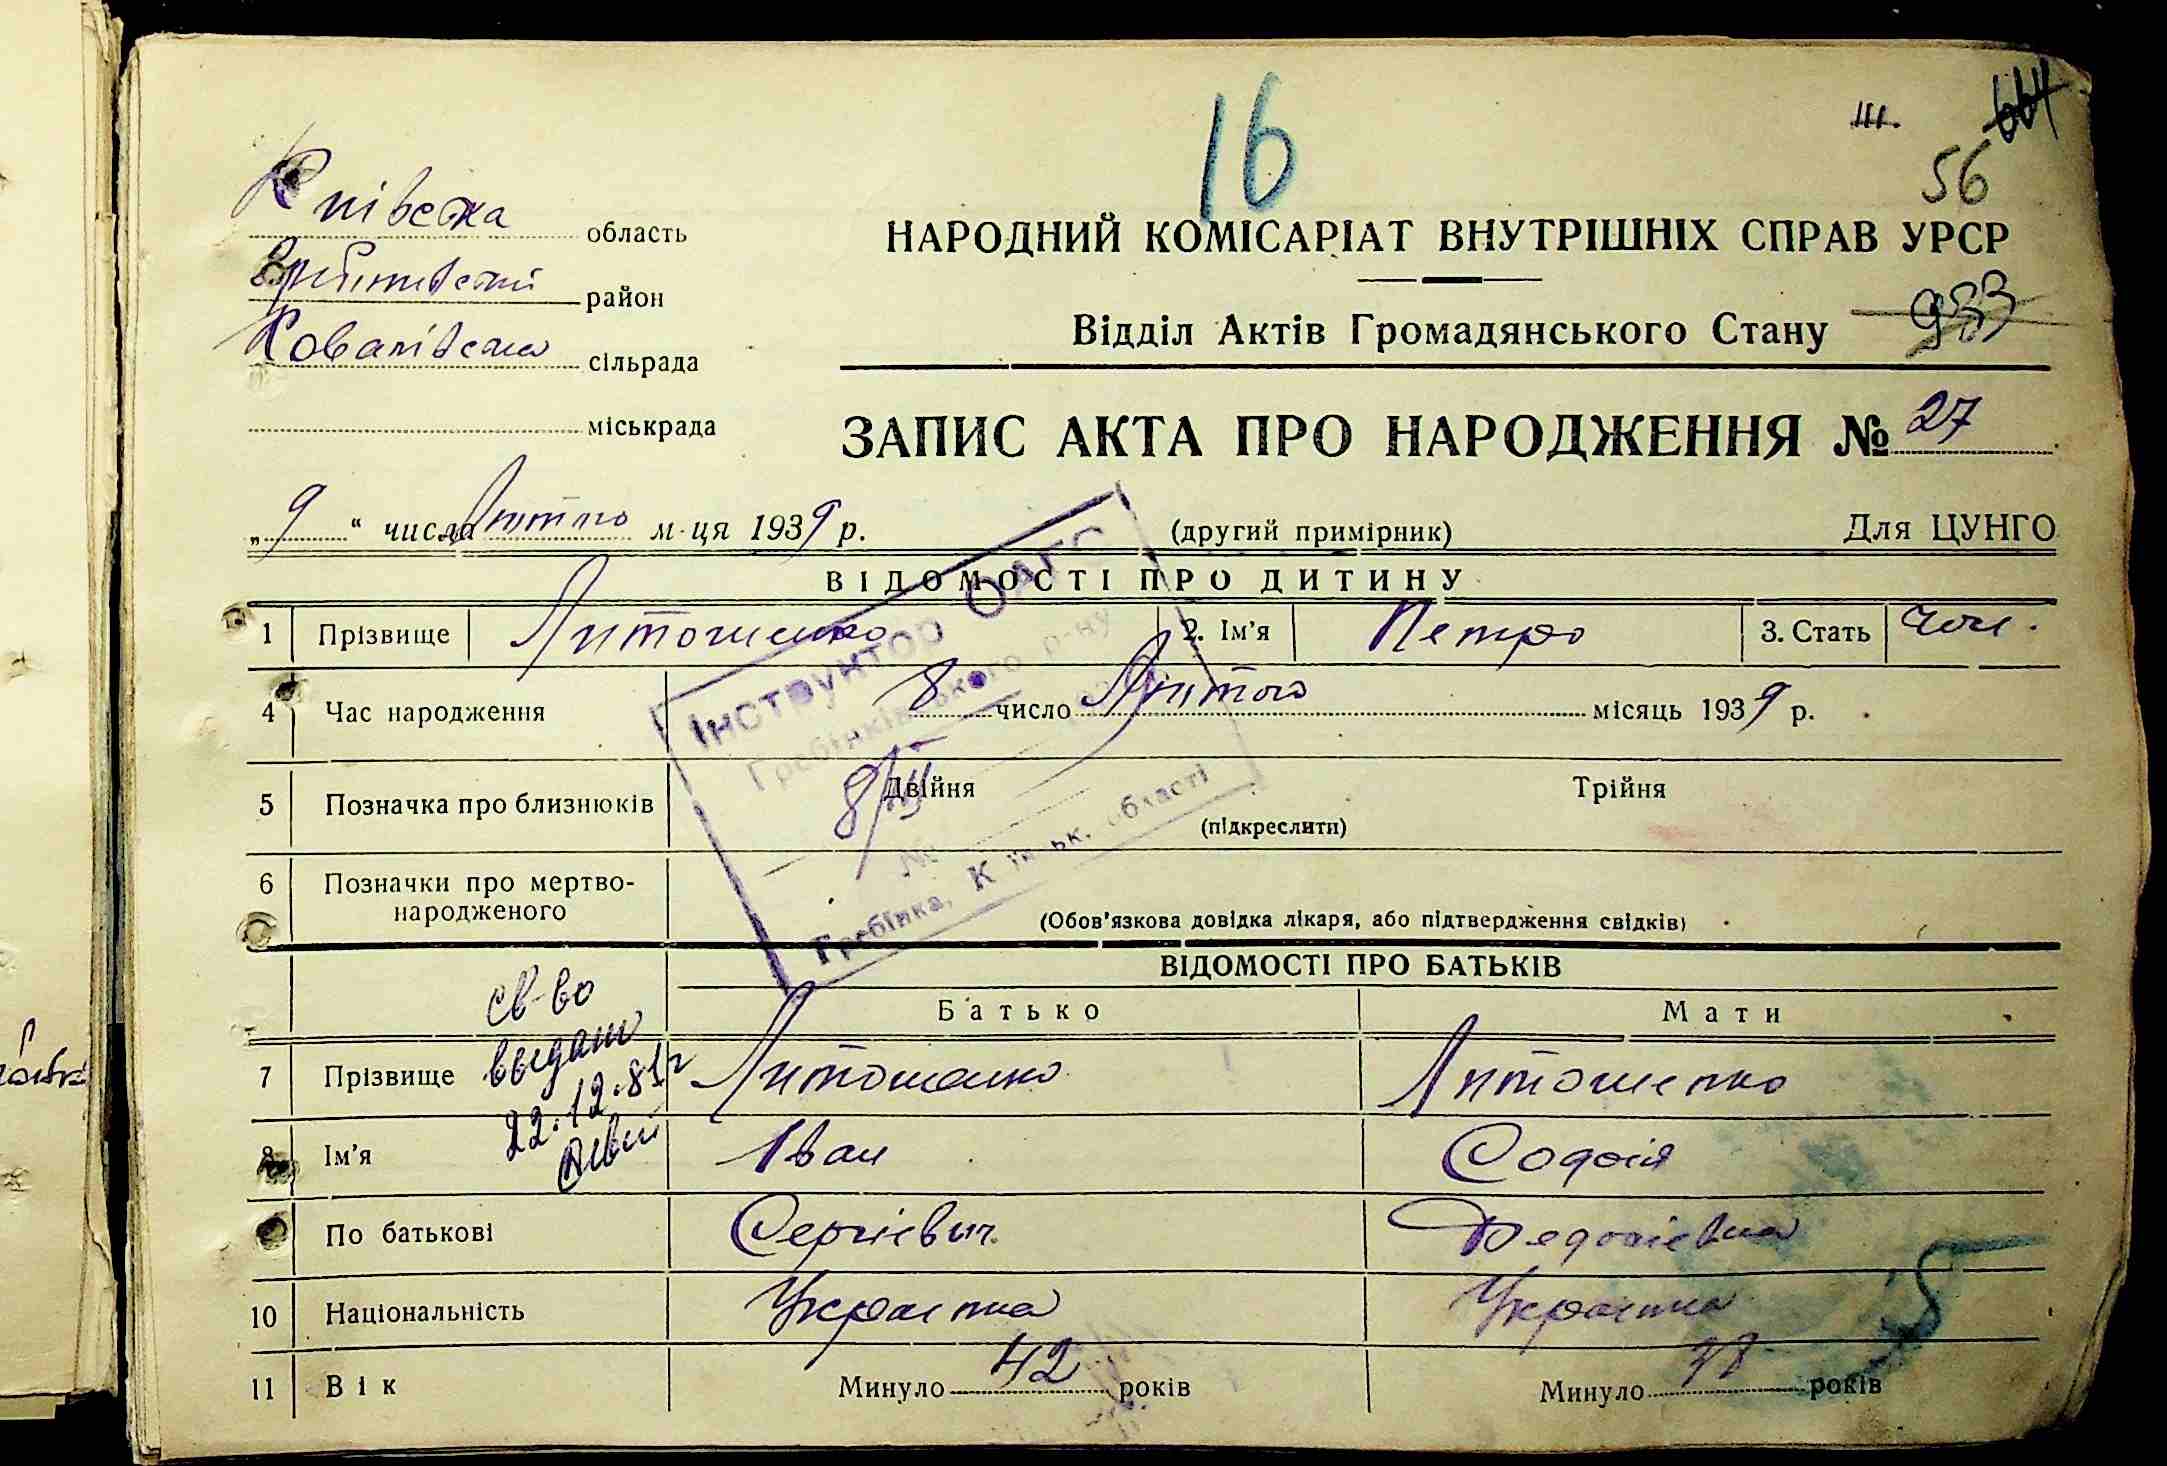 16
ш.
664
56
Київська область
НАРОДНИЙ КОМІСАРІАТ ВНУТРІШНІХ СПРАВ УРСР
район
Відділ Актів Громадянського Стану
933
Ковалівська сільрада
міськрада
ЗАПИС АКТА ПРО НАРОДЖЕННЯ № 27
„9“ числа Лютого м-ця 1939 р.
(другий примірник)
Для ЦУНГО
ВІДОМОСТІ ПРО ДИТИНУ
1 Прізвище Литошенко 2. Ім'я Петро 3. Стать чол.
4 Час народження 8 число Лютого місяць 1939 р.
5 Позначка про близнюків Двійня Трійня
(підкреслити)
6 Позначки про мертво-
народженого
(Обов'язкова довідка лікаря, або підтвердження свідків)
Інструктор ОАГС
Гребінківського р-ну
№
Гребінка, Київськ. області
ВІДОМОСТІ ПРО БАТЬКІВ
Батько Мати
св-во
выдано
22.12.81г
7 Прізвище Литошенко Литошенко
8 Ім'я Іван Софія
По батькові Сергієвич
10 Національність Українка Українка
11 Вік Минуло 42 років Минуло 38 років
5